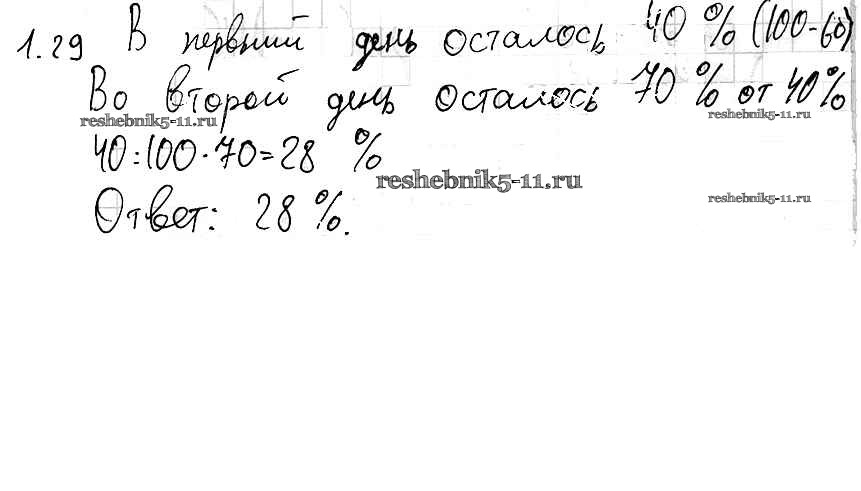 1.29 В первый день осталось 40 % (100-60)
Во второй день осталось 70 % от 40%
reshebnik5-11.ru
reshebnik5-11.ru
40:100·70=28 %
reshebnik5-11.ru
reshebnik5-11.ru
Ответ: 28 %.